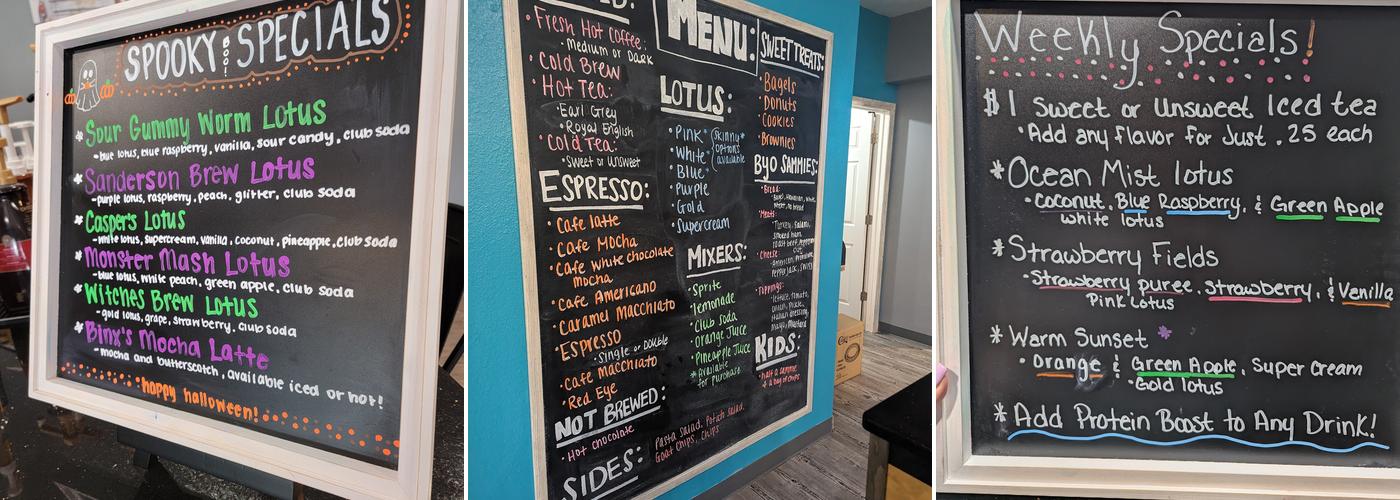 SPOOKY BOO! SPECIALS
* Sour Gummy Worm Lotus
-blue lotus, blue raspberry, vanilla, sour candy, club soda
* Sanderson Brew Lotus
-purple lotus, raspberry, peach, glitter, club soda
Caspers Lotus
-white lotus, supercream, vanilla, coconut, pineapple, club soda
* Monster Mash Lotus
-blue lotus, white peach, green apple, club soda
* Witches Brew Lotus
-gold lotus, grape, strawberry, club soda
* Binx's Mocha Latte
-mocha and butterscotch, available iced or hot!
happy halloween!
Fresh Hot Coffee:
• Medium or Dark
• Cold Brew
• Hot Tea:
• Earl Grey
• Royal English
• Cold Tea:
• Sweet or Unsweet
ESPRESSO:
• Cafe latte
• Cafe Mocha
• Cafe White Chocolate
mocha
• Cafe Americano
• Caramel Macchiato
• Espresso
• Single or Double
• Cafe Macchiato
• Red Eye
NOT BREWED:
• Hot chocolate
SIDES:
Pasta Salad, Potato Salad,
Goat Chips, Chips
MENU:
LOTUS:
• Pink*
• White*
• Blue*
skinny*
options
available
• Purple
• Gold
• Supercream
MIXERS:
• Sprite
• lemonade
• Club soda
• Orange Juice
• Pineapple Juice
* Available
for Purchase
SWEET TREATS:
• Bagels
• Donuts
• Cookies
• Brownies
BYO SAMMIES:
• Bread:
• Meats:
Turkey, Salami,
smoked ham,
• Cheese:
Pepper jack, Swiss
• Toppings:
lettuce, tomato,
onion, Pickle,
Italian dressing,
Mayo, Mustard
KIDS:
• half a sammie
& a bag of chips
Weekly Specials!
$1 Sweet or Unsweet Iced tea
• Add any flavor for Just .25 each
* Ocean Mist lotus
• coconut, Blue Raspberry, & Green Apple
white lotus
* Strawberry Fields
• Strawberry puree, Strawberry, & Vanilla
Pink Lotus
* Warm Sunset *
• Orange & Green Apple, Super Cream
• Gold lotus
* Add Protein Boost to Any Drink!